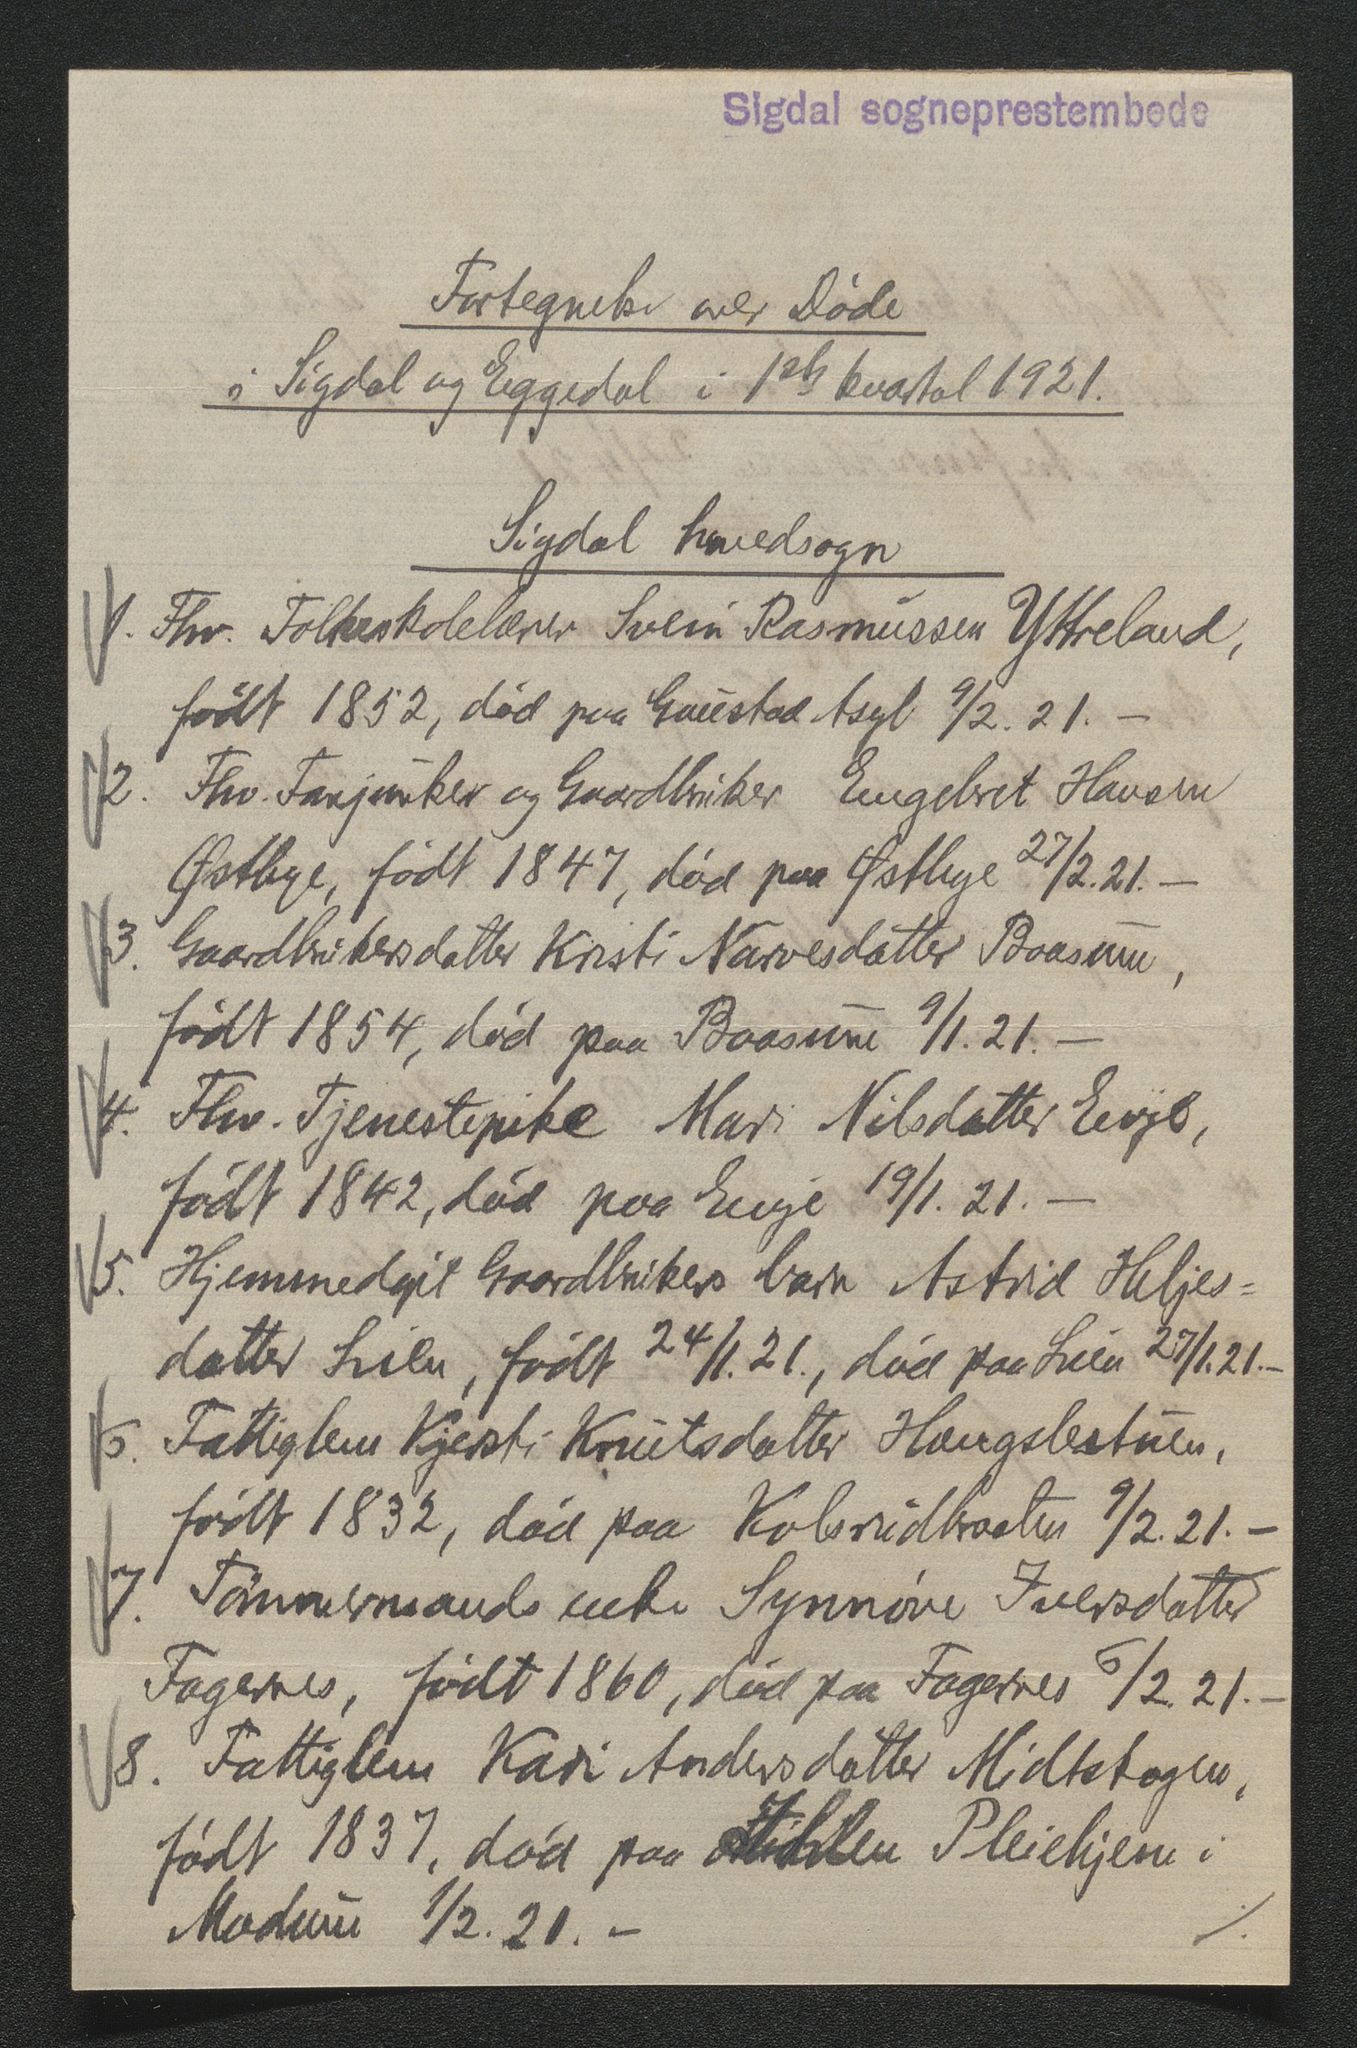 Sigdal sogneprestembede
Fortegnelse over Døde
i Sigdal og Eggedal i 1ste kvartal 1921.
Sigdal hovedsogn
1. Fhv. Folkeskolelærer Svein Rasmussen Yttreland,
født 1852, død paa Gaustad Asyl 9/2. 21. —
2. Fhv. Fanejunker og Gaardbruker Engebret Hansen
Østbye, født 1847, død paa Østbye 27/2. 21. —
3. Gaardbrukersdatter Kristi Narvesdatter Baasum,
født 1854, død paa Baasum 9/1. 21. —
4. Fhv. Tjenestepike Mari Nilsdatter Evje,
født 1842, død paa Evje 19/1. 21. —
5. Hjemmedøpt Gaardbrukers barn Astrid Heljes=
datter Lien, født 24/1. 21., død paa Lien 27/1. 21. —
6. Fattiglem Kjersti Knutsdatter Haugslestuen,
født 1832, død paa Kolsrudbraaten 9/2. 21. —
7. Tømmermands enke Synnøve Iversdatter
Fagernes, født 1860, død paa Fagernes 6/2. 21. —
8. Fattiglem Kari Andersdatter Midtskogen,
født 1837, død paa Pleiehjem i
Modum 1/2. 21. —
./.